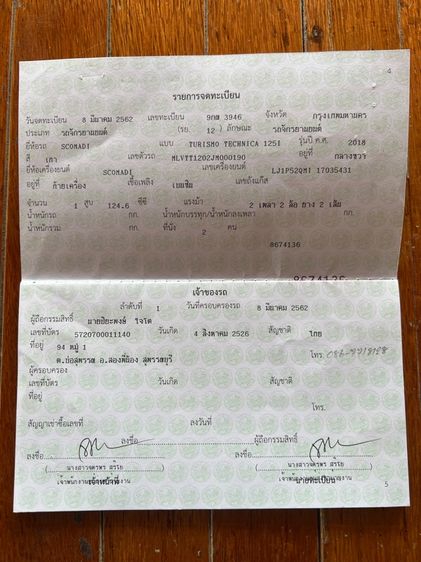 4
รายการจดทะเบียน
วันจดทะเบียน 8 มีนาคม 2562 เลขทะเบียน 9กฒ 3946 จังหวัด กรุงเทพมหานคร
ประเภท รถจักรยานยนต์ (รย. 12) ลักษณะ รถจักรยานยนต์
ยี่ห้อรถ SCOMADI แบบ TURISMO TECHNICA 125I รุ่นปี ค.ศ. 2018
สี เทา เลขตัวรถ MLVTT1202JM000190 อยู่ที่ กลางขวา
ยี่ห้อเครื่องยนต์ SCOMADI เลขเครื่องยนต์ LJ1P52QMI 17035431
อยู่ที่ ซ้ายเครื่อง เชื้อเพลิง เบนซิน เลขถังแก๊ส
จำนวน 1 สูบ 124.6 ซีซี แรงม้า 2 เพลา 2 ล้อ ยาง 2 เส้น
น้ำหนักรถ กก. น้ำหนักบรรทุก/น้ำหนักลงเพลา กก.
น้ำหนักรวม กก. ที่นั่ง 2 คน
8674136
8674136
เจ้าของรถ
ลำดับที่ 1 วันที่ครอบครองรถ 8 มีนาคม 2562
ผู้ถือกรรมสิทธิ์ นายปิยะพงษ์ ใจโต
เลขที่บัตร 5720700011140 วันเกิด 4 สิงหาคม 2526 สัญชาติ ไทย
ที่อยู่ 94 หมู่ 1
ต.บ่อสุพรรณ อ.สองพี่น้อง สุพรรณบุรี โทร.
ผู้ครอบครอง
เลขที่บัตร วันเกิด สัญชาติ
ที่อยู่
โทร.
สัญญาเช่าซื้อเลขที่ ลงวันที่
ลงชื่อ ผู้ถือกรรมสิทธิ์
ลงชื่อ ลงชื่อ
เจ้าหน้าที่ นายทะเบียน
5